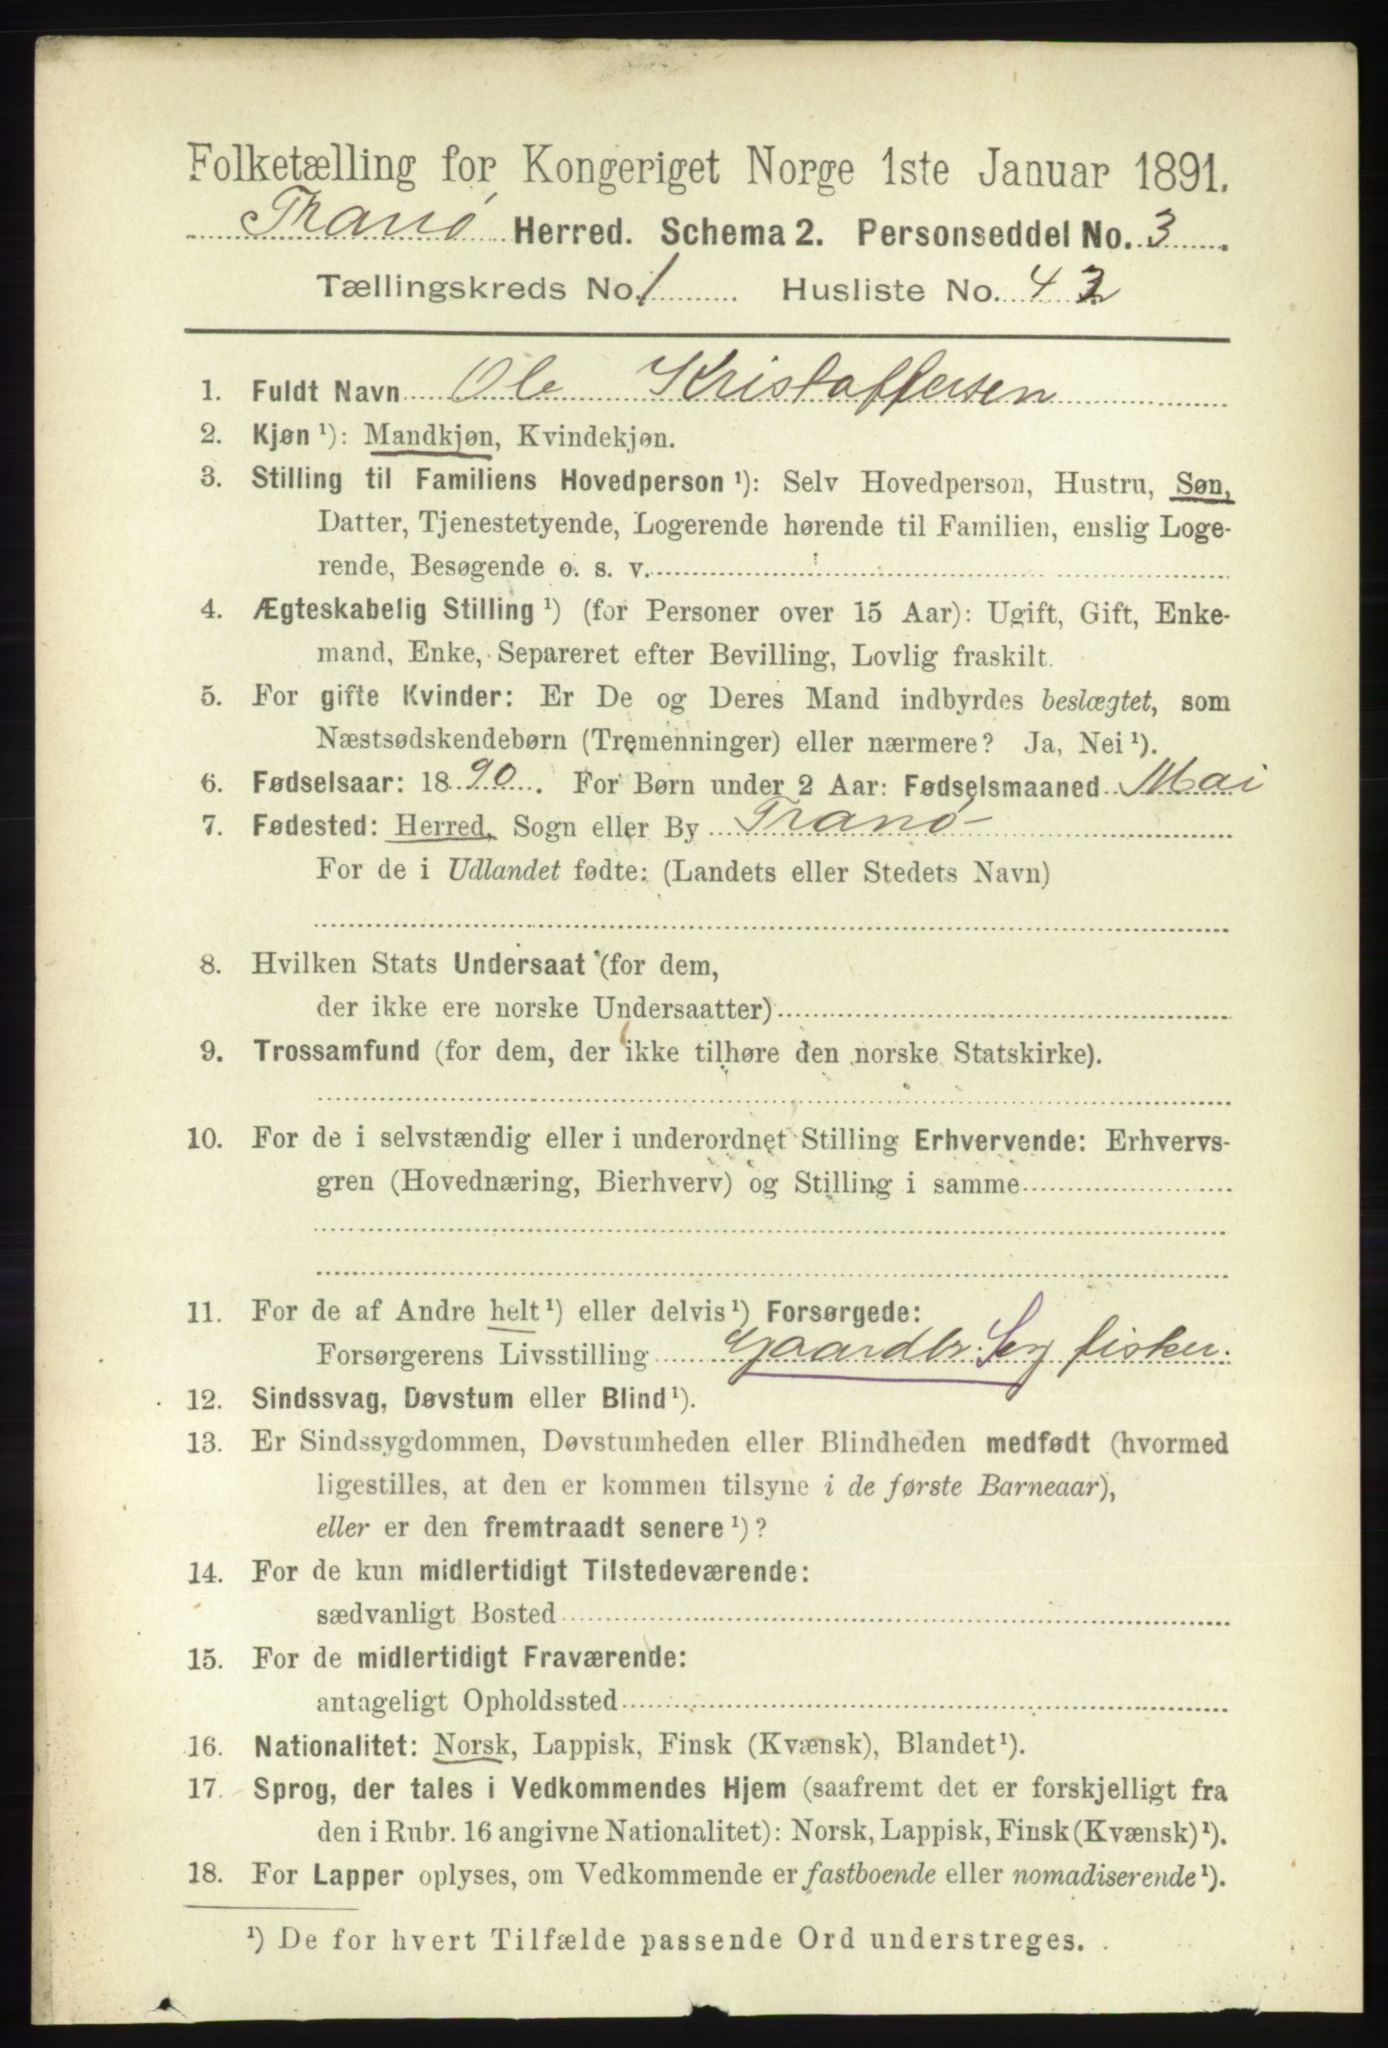 Folketælling for Kongeriget Norge 1ste Januar 1891.
Tranø Herred. Schema 2. Personseddel No. 3
Tællingskreds No. 1 Husliste No. 43
1. Fuldt Navn Ole Kristoffersen
2. Kjøn ¹): Mandkjøn, Kvindekjøn.
3. Stilling til Familiens Hovedperson ¹): Selv Hovedperson, Hustru, Søn,
Datter, Tjenestetyende, Logerende hørende til Familien, enslig Loge-
rende, Besøgende o. s. v.
4. Ægteskabelig Stilling ¹) (for Personer over 15 Aar): Ugift, Gift, Enke-
mand, Enke, Separeret efter Bevilling, Lovlig fraskilt.
5. For gifte Kvinder: Er De og Deres Mand indbyrdes beslægtet, som
Næstsødskendebørn (Tremenninger) eller nærmere? Ja, Nei ¹).
6. Fødselsaar: 1890. For Børn under 2 Aar: Fødselsmaaned Mai
7. Fødested: Herred, Sogn eller By Tranø
For de i Udlandet fødte: (Landets eller Stedets Navn)
8. Hvilken Stats Undersaat (for dem,
der ikke ere norske Undersaatter)
9. Trossamfund (for dem, der ikke tilhøre den norske Statskirke).
10. For de i selvstændig eller i underordnet Stilling Erhvervende: Erhvervs-
gren (Hovednæring, Bierhverv) og Stilling i samme
11. For de af Andre helt ¹) eller delvis ¹) Forsørgede:
Forsørgerens Livsstilling Gaardbr. fisker.
12. Sindssvag, Døvstum eller Blind ¹).
13. Er Sindssygdommen, Døvstumheden eller Blindheden medfødt (hvormed
ligestilles, at den er kommen tilsyne i de første Barneaar),
eller er den fremtraadt senere ¹)?
14. For de kun midlertidigt Tilstedeværende:
sædvanligt Bosted
15. For de midlertidigt Fraværende:
antageligt Opholdssted
16. Nationalitet: Norsk, Lappisk, Finsk (Kvænsk), Blandet ¹).
17. Sprog, der tales i Vedkommendes Hjem (saafremt det er forskjelligt fra
den i Rubr. 16 angivne Nationalitet): Norsk, Lappisk, Finsk (Kvænsk) ¹).
18. For Lapper oplyses, om Vedkommende er fastboende eller nomadiserende ¹).
¹) De for hvert Tilfælde passende Ord understreges.